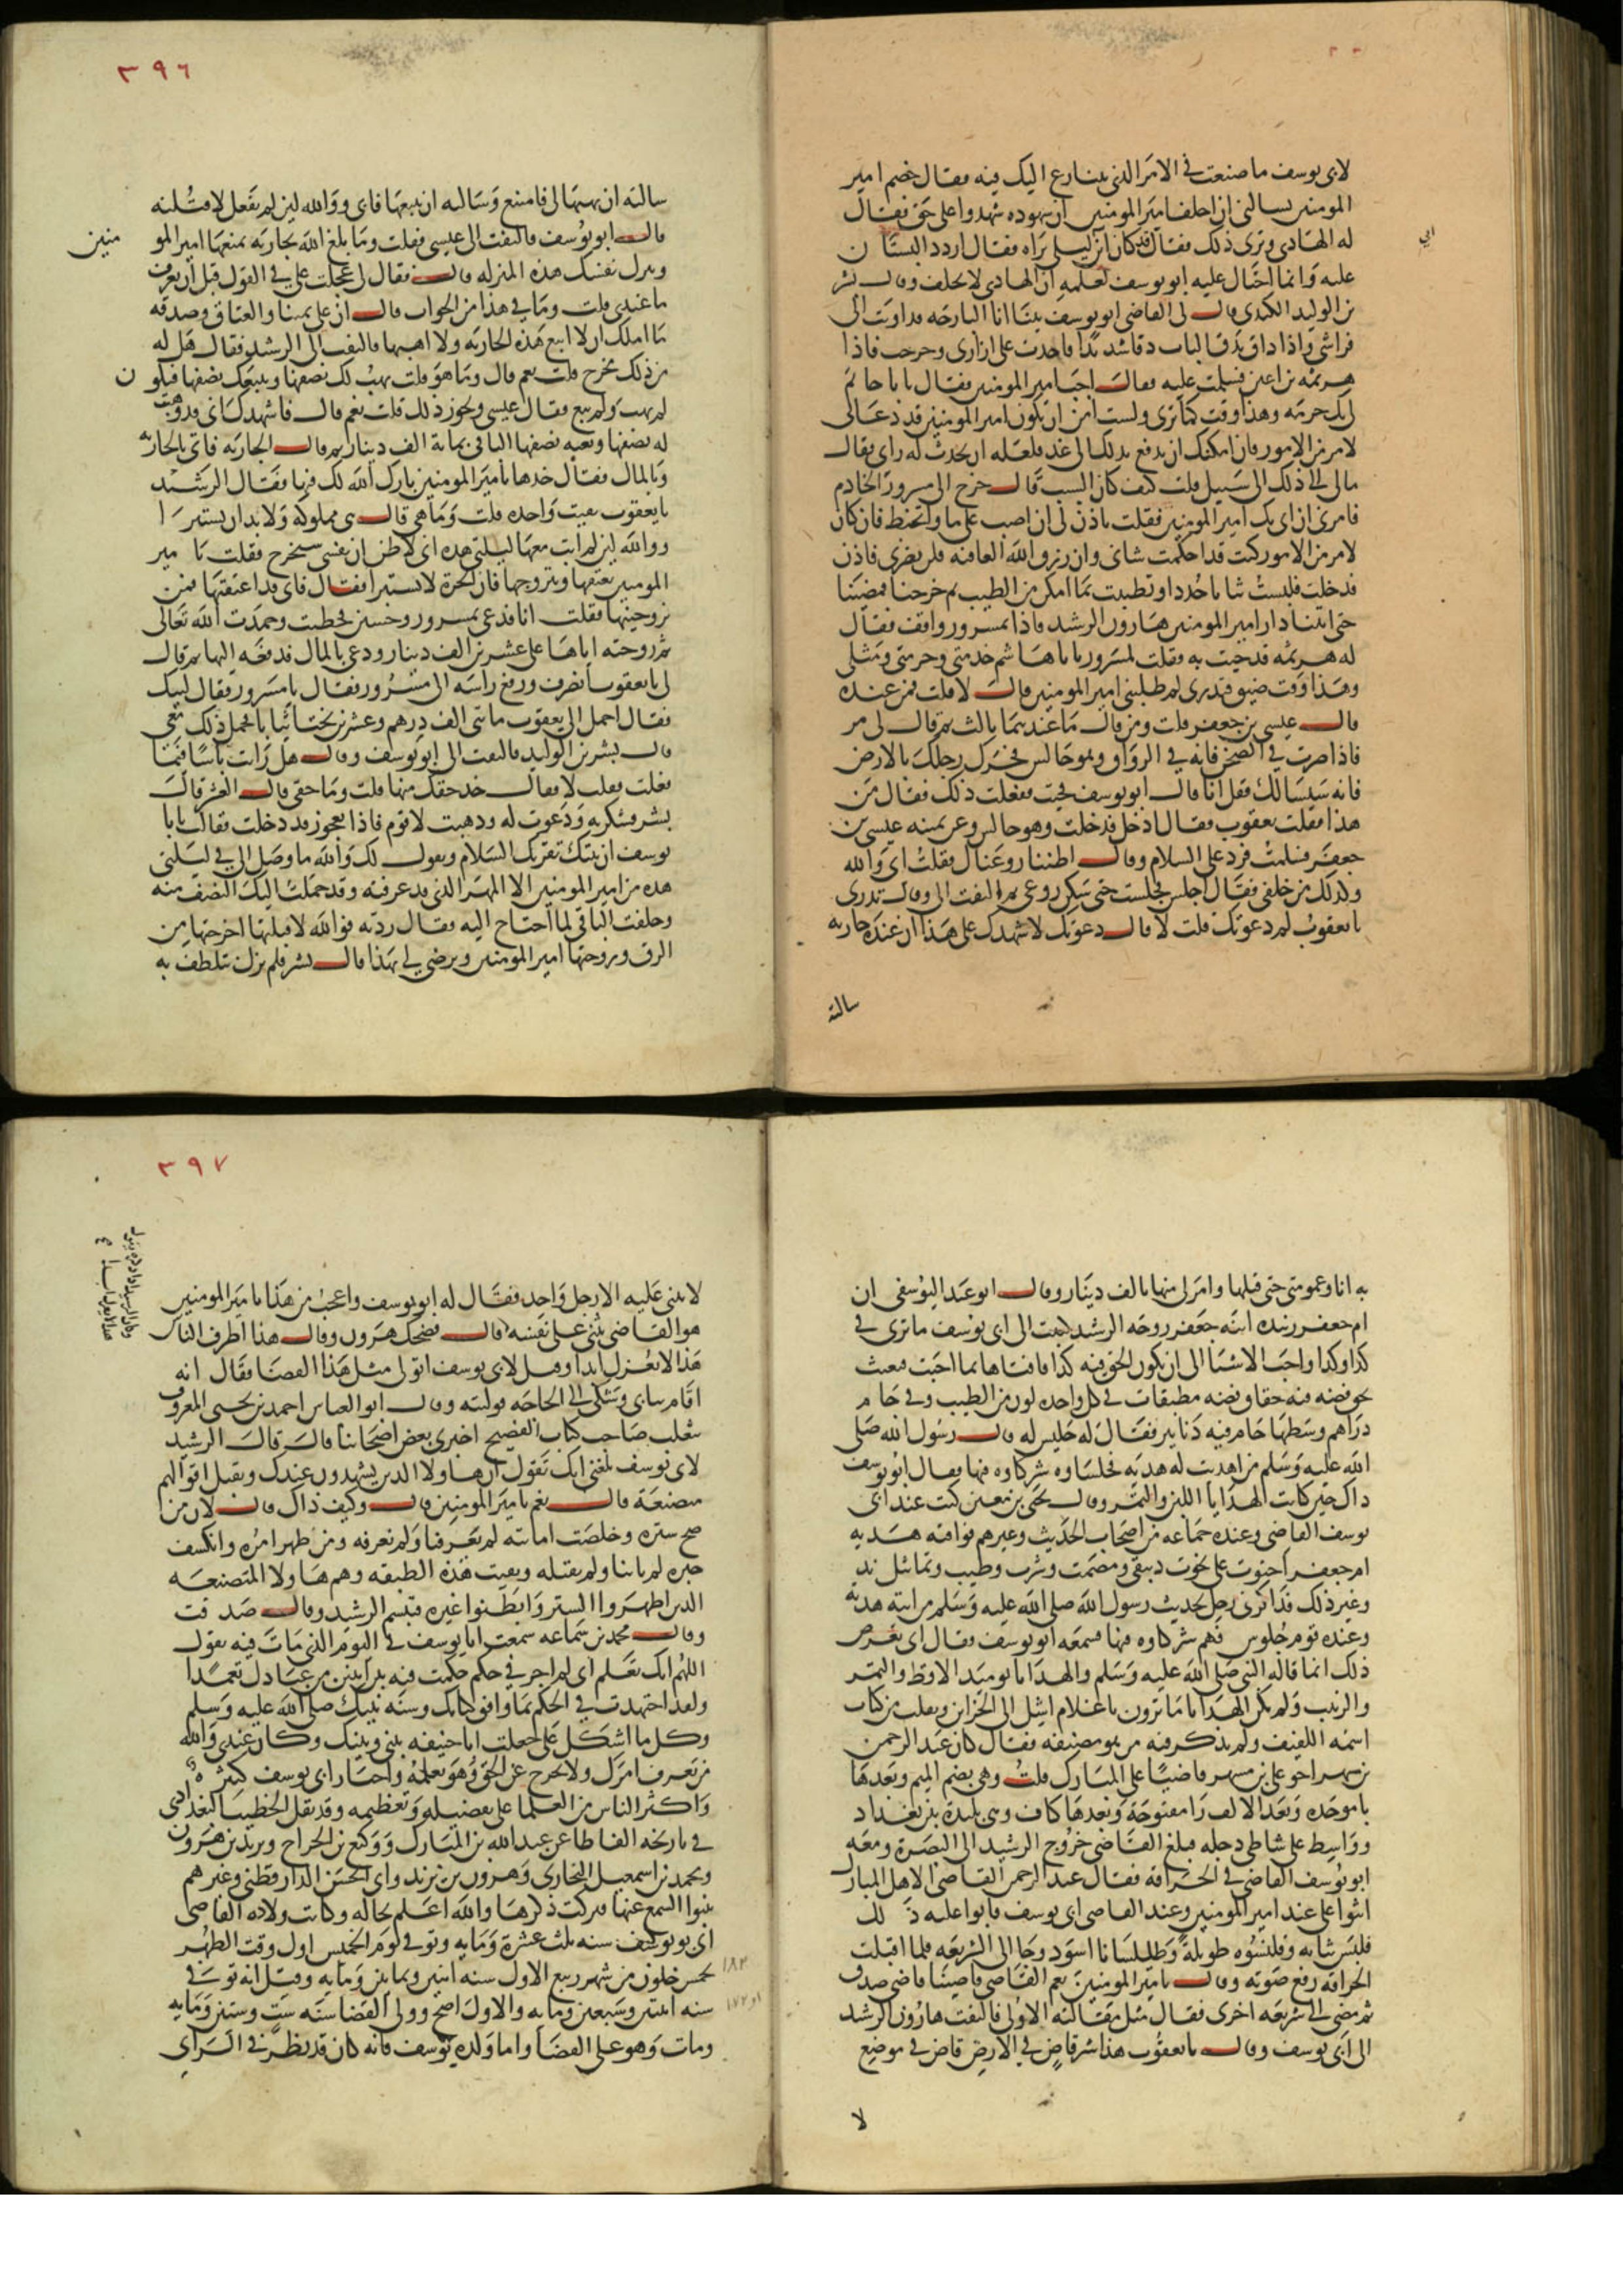 لابى يوسف ما صنعت فى الامر الذى يتنازع اليك فيه فقال خصم امير
المومنين يسالنى ان احلف امير المومنين ان شهوده شهدوا على حق فقال
له الهادى وترى ذلك فقال قد كان ابن ابى ليلى يراه فقال اردد البستان
ابى
عليه وانما احتال عليه ابو يوسف لعلمه ان الهادى لا يحلف وقال بشر
بن الوليد الكندى قال لى القاضى ابو يوسف بينا انا البارحه قد اويت الى
فراشى واذا داق يدق الباب دقا شديدا فاخذت على ازارى وخرجت فاذا
هرثمه بن اعين فسلمت عليه فقال اجب امير المومنين فقلت يا با حاتم
لى بك حرمه وهذا وقت كما ترى ولست امن ان يكون امير المومنين قد دعانى
لامر من الامور فان امكنك ان تدفع بذلك الى غد فلعله ان يحدث له راى فقال
مالى الى ذلك الى سبيل قلت كيف كان السبب قال خرج الى مسرور الخادم
فامرنى ان اى بك امير المومنين فقلت تاذن لى ان اصب على ما واتحنط فان كان
لامر من الامور كنت قد احكمت شانى وان رزق الله العافيه فلن يضر فاذن
فدخلت فلبست ثيابا جددا وتطيبت بما امكن من الطيب ثم خرجنا فمضينا
حتى اتينا دار امير المومنين هارون الرشيد فاذا مسرور واقف فقال
له هرثمه قد جيت به فقلت لمسرور يا با هاشم خدمتى وحرمتى ومثلى
وهذا وقت ضيق فتدرى لم طلبنى امير المومنين قال لا قلت فمن عنده
قال عيسى بن جعفر قلت ومن قال ما عندهما ثالث ثم قال لى مر
فاذا صرت فى الصحن فانه فى الرواق وهو جالس فحرك رجلك بالارض
فانه سيسالك فقل انا قال ابو يوسف فجيت ففعلت ذلك فقال من
هذا فقلت يعقوب فقال ادخل فدخلت وهو جالس وعن يمينه عيسى بن
جعفر فسلمت فرد على السلام وقال اظننا روعناك فقلت اى والله
وكذلك من خلفى فقال اجلس فجلست حتى سكن روعى ثم التفت الى وقال تدرى
يا يعقوب لم دعوتك قلت لا قال دعوتك لاشهدك على هذا ان عنده جاريه
سالته
٣٩٦
سالته ان يهبها لى فامتنع وسالته ان يبيعها فابى ووالله لين لم يفعل لاقتلنه
قال ابو يوسف فالتفت الى عيسى فقلت وما بلغ الله بجاريه تمنعها امير المو
منين
وتنزل نفسك هذه المنزله قال فقال لى عجلت على فى القول قبل ان تعرف
ما عندى قلت وما فى هذا من الجواب قال ان على يمينا والعتاق وصدقه
ما املك ان لا ابيع هذه الجاريه ولا اهبها فالتفت الى الرشيد فقال هل له
من ذلك مخرج قلت نعم قال وما هو قلت يهب لك نصفها ويبيعك نصفها فيكون
لم يهب ولم يبع فقال عيسى ويجوز ذلك قلت نعم قال فاشهدك انى قد وهبت
له نصفها وبعته نصفها الباقى بماية الف دينار ثم قال الجاريه فاتى بالجاريه
وبالمال فقال خذها يا امير المومنين بارك الله لك فيها فقال الرشيد
يا يعقوب بقيت واحده قلت وما هى قال هى مملوكه ولا بد ان يستبرا
ووالله لين لم ابت معها ليلتى هذه انى لاظن ان نفسى ستخرج فقلت يا امير
المومنين تعتقها وتتزوجها فان الحرة لا تستبرا فقال فانى قد اعتقتها فمن
يزوجنيها فقلت انا فدعى بمسرور وحسين فخطبت وحمدت الله تعالى
ثم زوجته اياها على عشرين الف دينار ودعى بالمال فدفعه اليها ثم قال
لى يا يعقوب انصرف ورفع راسه الى مسرور فقال يا مسرور فقال لبيك
فقال احمل الى يعقوب مايتى الف درهم وعشرين تختا ثيابا فحمل ذلك معى
قال بشر بن الوليد فالتفت الى ابو يوسف وقال هل رايت باسا فيما
فعلت فقلت لا فقال خذ حقك منها قلت وما حقى قال العشر قال
بشر فشكرته ودعوت له وذهبت لاقوم فاذا بعجوز قد دخلت فقالت يا با
يوسف ابنتك تقريك السلام وتقول لك والله ما وصل الى فى ليلتى
هذه من امير المومنين الا المهر الذى قد عرفته وقد حملت اليك النصف منه
وخلفت الباقى لما احتاج اليه فقال رديه فوالله لا قبلتها اخرجتها من
الرق وزوجتها امير المومنين وترضى لى بهذا قال بشر فلم نزل نتلطف به
به انا وعمومتى حتى قبلها وامر لى منها بالف دينار وقال ابو عبد اليوسفى ان
ام جعفر زبيده ابنه جعفر زوجه الرشيد كتبت الى ابى يوسف ما ترى فى
كذا وكذا واحب الاشيا الى ان يكون الحق فيه كذا فافتاها بما احبت فبعثت
بحق فضه فيه حقاق فضه مطبقات فى كل واحده لون من الطيب وفى جام
دراهم وسطها جام فيه دنانير فقال له جليس له قال رسول الله صلى
الله عليه وسلم من اهديت له هديه فجلساوه شركاوه فيها فقال ابو يوسف
ذاك حين كانت الهدايا اللبن والتمر وقال يحيى بن معين كنت عند ابى
يوسف القاضى وعنده جماعه من اصحاب الحديث وغيرهم فوافته هديه
ام جعفر احتوت على تخوت دبيقى ومصمت وشرب وطيب وتماثيل ند
وغير ذلك فذاكرنى رجل بحديث رسول الله صلى الله عليه وسلم من اتته هدية
وعنده قوم جلوس فهم شركاوه فيها فسمعه ابو يوسف فقال ابى تعرض
ذلك انما قاله النبى صلى الله عليه وسلم والهدايا يوميد الاقط والتمر
والزبيب ولم تكن الهدايا ما ترون يا غلام اشل الى الخزاين ونقلت من كتاب
اسمه اللفيف ولم يذكر فيه من هو مصنفه فقال كان عبد الرحمن
بن مسهر اخو على بن مسهر قاضيا على المبارك قلت وهى بضم الميم وبعدها
با موحده وبعد الالف را مفتوحة وبعدها كاف وهى بليدة بين بغداد
وواسط على شاطى دجله فبلغ القاضى خروج الرشيد الى البصرة ومعه
ابو يوسف القاضى فى الحراقه فقال عبد الرحمن القاضى لاهل المبارك
اثنوا على عند امير المومنين وعند القاضى ابى يوسف فابوا عليه ذلك
فلبس ثيابه وقلنسوه طويلة وطيلسانا اسود وجا الى الشريعه فلما اقبلت
الحراقه رفع صوته وقال يا امير المومنين نعم القاضى قاضينا قاضى صدق
ثم مضى الى شريعه اخرى فقال مثل مقالته الاولى فالتفت هارون الرشيد
الى ابى يوسف وقال يا يعقوب هذا شر قاض فى الارض قاض فى موضع
لا
٣٩٧
لا يثنى عليه الا رجل واحد فقال له ابو يوسف واعجب من هذا يا امير المومنين
هو القاضى يثنى على نفسه قال فضحك هرون وقال هذا اظرف الناس
هذا لا يعزل ابدا وقيل لابى يوسف اتولى مثل هذا القضا فقال انه
اقام ببابى وتشكى الى الحاجه فوليته وقال ابو العباس احمد بن يحيى المعروف
بثعلب صاحب كتاب الفصيح اخبرنى بعض اصحابنا قال قال الرشيد
لابى يوسف بلغنى انك تقول ان هاولا الذين يشهدون عندك وتقبل اقوالهم
متصنعة قال نعم يا امير المومنين قال وكيف ذاك قال لان من
صح ستره وخلصت امانته لم يعرفنا ولم نعرفه ومن ظهر امره وانكشف
خبره لم ياتنا ولم نقبله وبقيت هذه الطبقه وهم هاولا المتصنعه
الذين اظهروا الستر وابطنوا غيره فتبسم الرشيد وقال صدقت
وقال محمد بن سماعه سمعت ابا يوسف فى اليوم الذى مات فيه يقول
اللهم انك تعلم انى لم اجر فى حكم حكمت فيه بين اثنين من عبادك تعمدا
ولقد اجتهدت فى الحكم بما وافق كتابك وسنه نبيك صلى الله عليه وسلم
وكل ما اشكل على جعلت ابا حنيفه بينى وبينك وكان عندى والله
ممن يعرف امرك ولا يخرج عن الحق وهو يعلمه واخبار ابى يوسف كثيرة
واكثر الناس من العلما على تفضيله وتعظيمه وقد نقل الخطيب البغدادى
فى تاريخه الفاظا عن عبد الله بن المبارك ووكيع بن الجراح ويزيد بن هرون
ومحمد بن اسمعيل البخارى وهرون بن يزيد وابى الحسن الدارقطنى وغيرهم
ينبوا السمع عنها فتركت ذكرها والله اعلم بحاله وكانت ولاده القاضى
ابى يوسف سنه ثلث عشرة ومايه وتوفى يوم الخميس اول وقت الظهر
لخمس خلون من شهر ربيع الاول سنه اثنين وثمانين ومايه وقيل انه توفى
١٨٢
سنه اثنتين وسبعين ومايه والاول اصح وولى القضا سنه ست وستين ومايه
ومات وهو على القضا واما ولده يوسف فانه كان قد نظر فى الراى